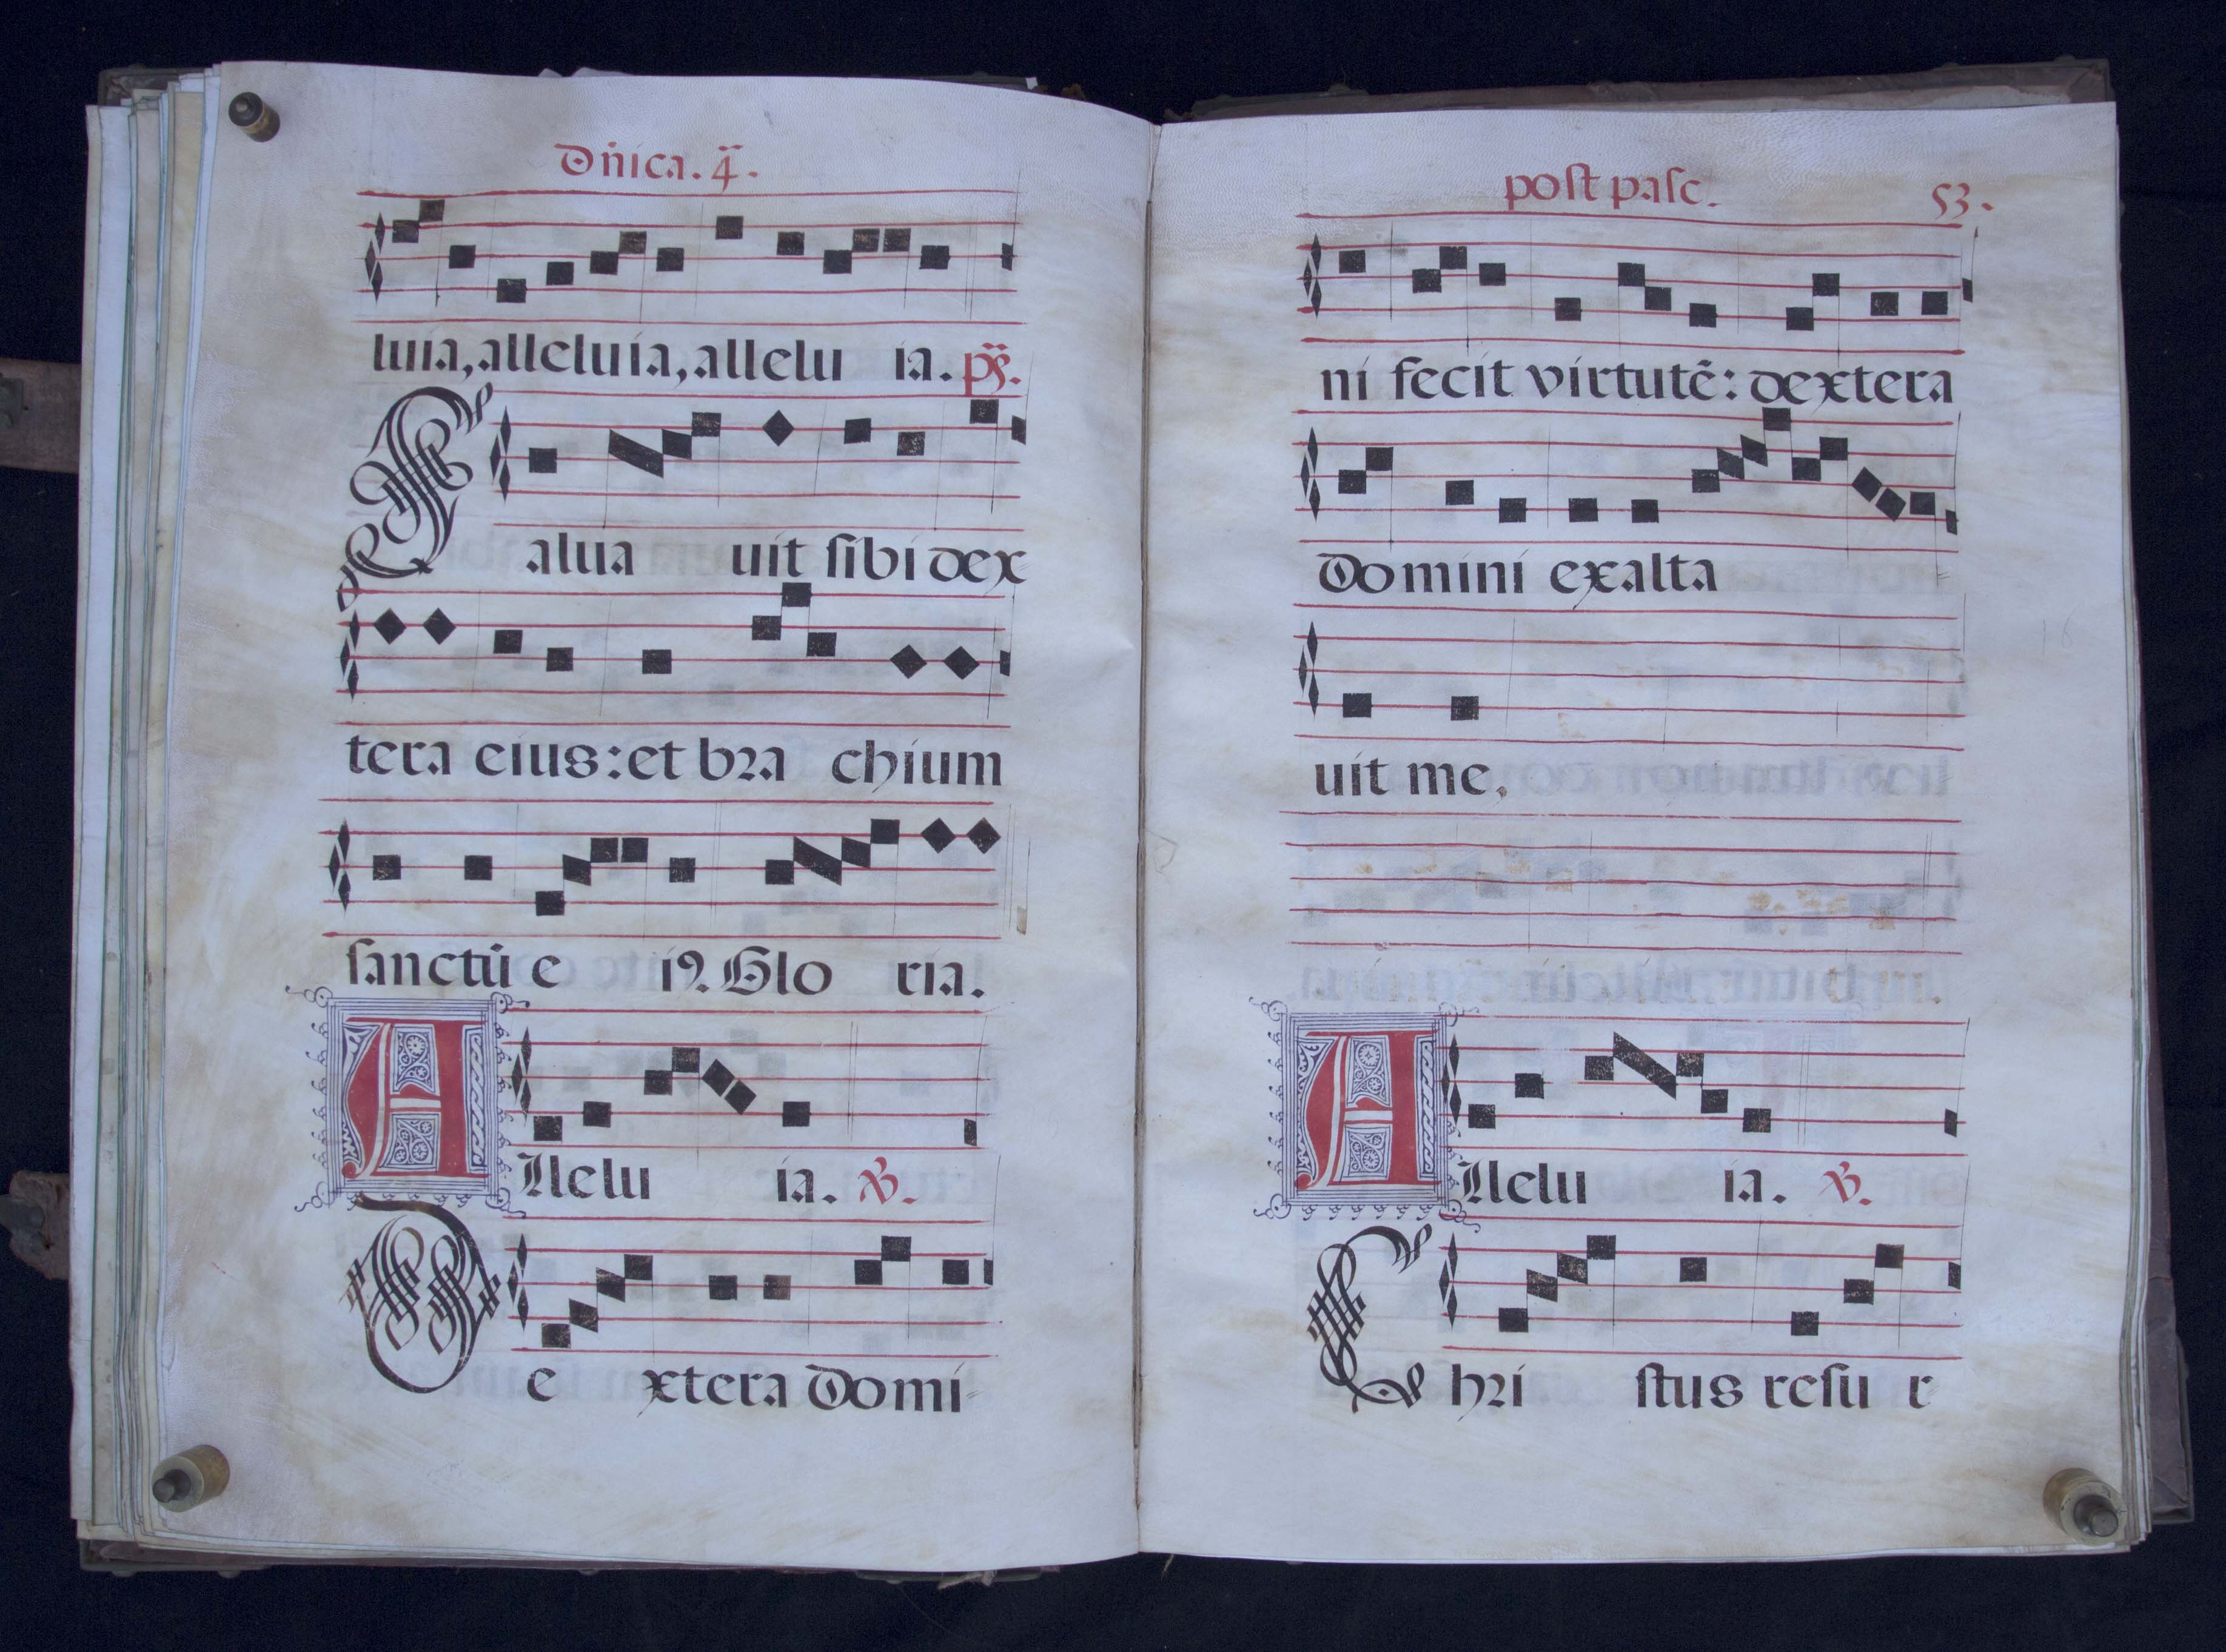 Dñica. 4ᵃ.
luia, alleluia, allelu ia. ps̃.
Salua uit sibi dex
tera eius: et bra chium
sanctū e i9. Glo ria.
Allelu ia. ℣.
De xtera Domi
post pasc. 53.
ni fecit virtutē: dextera
Domini exalta
uit me.
Allelu ia. ℣.
Chri stus resu r